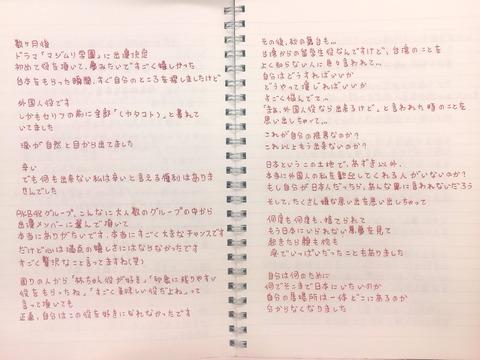 数ヶ月後
ドラマ「マジムリ学園」に出演決定
初めて役を頂いて、夢みたいですごく嬉しかった
台本をもらった瞬間、すぐ自分のところを探しましたけど
外国人役です
しかもセリフの前に全部「(カタコト)」と書れて
いてました
涙が自然と目から出てました
辛い
でも何も出来ない私は辛いと言える権利はありま
せんでした
AKB48グループ、こんなに大人数のグループの中から
出演メンバーに選んで頂いて
本当にありがたいです、本当にすごく大きなチャンスです
だけど心は満点の嬉しさにはならなかったです
すごく贅沢なこと言ってますね(笑)
周りの人から「林ちゃん役が好き」「印象に残りやすい
役をもらったね」「すごく美味しい役だよね」って
言って頂いても
正直、自分はこの役を好きになれなかったです
その後、秋の舞台も…
台湾からの留学生役なんですけど、台湾のことを
よく知らない人に色々言われて…
自分はどうすればいいか
どうやって演じればいいか
すごく悩んでて…
「まぁ、外国人役なら出来るけど」と言われた時のことを
思い出しちゃって…
これが自分の限界なのか?
これ以上もう出来ないのか?
日本というこの土地で、あずき以外、
本当に外国人の私を歓迎してくれる人がいないのか?
もし自分が日本人だったら、あんな風に言われないだろう
そして、たくさん嫌な思い出を思い出しちゃって
何度も何度も、捨てられて
もう日本にいられない悪夢を見て
起きたら顔も枕も
涙でいっぱいだったこともありました
自分は何のために
何でそこまで日本にいたいのか
自分の居場所は一体どこにあるのか
分からなくなりました